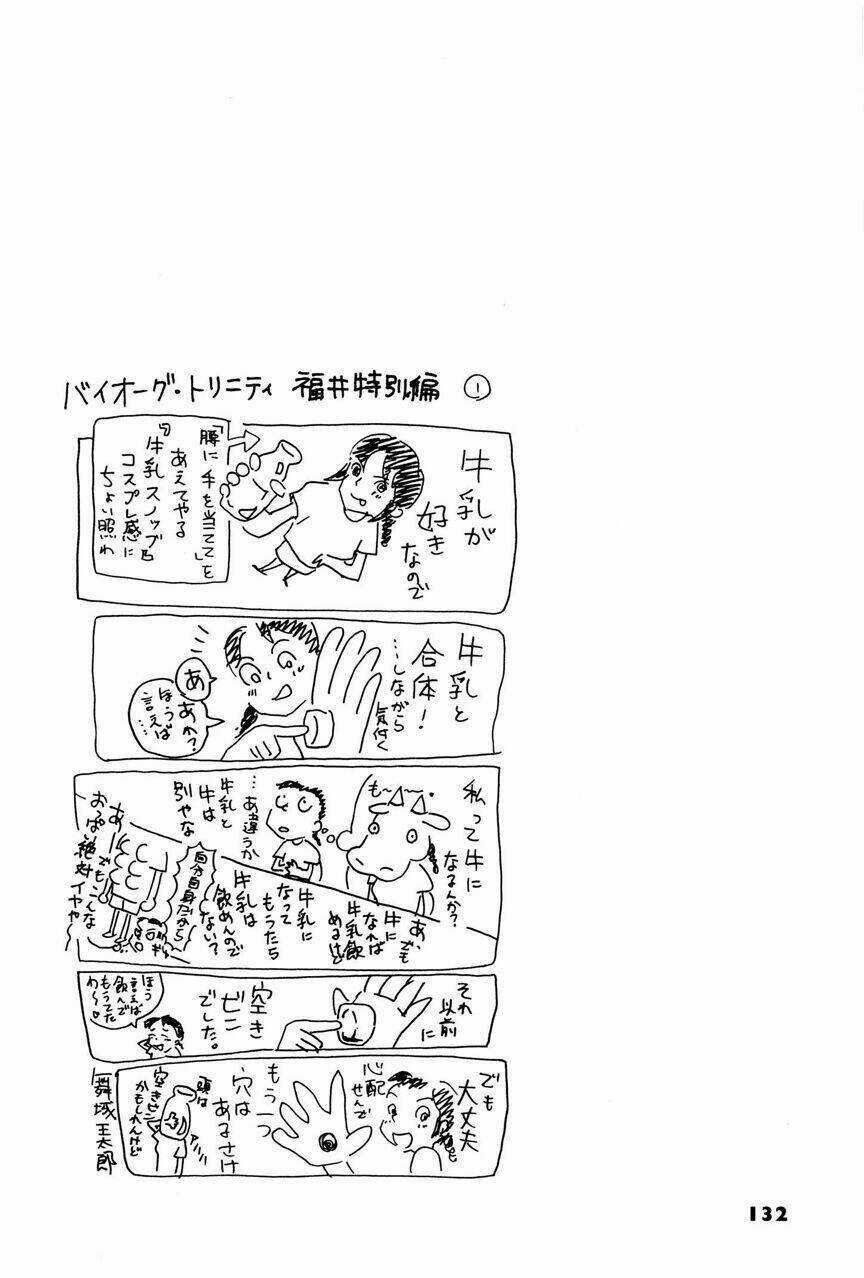 バイオーグ・トリニティ 福井特別編 ①
牛乳が
好き
なので
「腰に手を当てて」を
あえてやる
『牛乳スノッブ』
コスプレ感に
ちょい照れ
牛乳と
合体!
…しながら
気付く
あ
あれ?
ほうば
言えば…
私って牛に
なるんか?
も〜〜。
…あ違うか
牛乳と
牛は
別やな
あ、でも
牛に
なれば
牛乳飲
めるけど
牛乳に
なって
もうたら
牛乳は
飲めんので
ない?
自分自身だから
あー
でもこんな
おっぱい絶対イヤや
それ
以前
に
空き
ビン
でした。
ほう
言えば
飲んで
もうてた
わ〜♡
でも
大丈夫
心配
せんで
もう一つ
穴は
あるさけ
頭は
空きビン
かもしれんけど
舞城王太郎
132